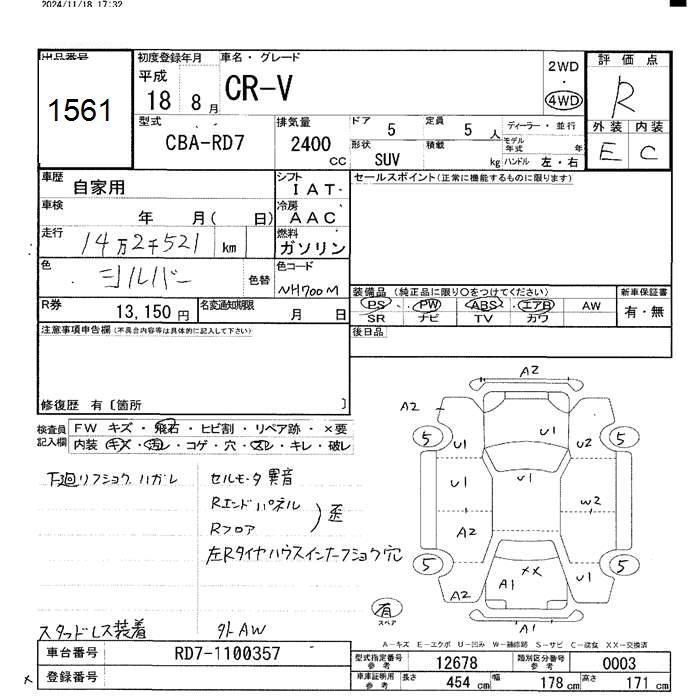 2024/11/18 17:32
出品番号
1561
初度登録年月
平成
18 8月
車名・グレード
CR-V
2WD
・
4WD
評価点
R
外装 内装
E C
型式
CBA-RD7
排気量
2400
CC
ドア 5
定員 5 人
ディーラー・並行
形状 SUV
積載 kg
モデル年式 年
ハンドル 左・右
車歴 自家用
シフト
I A T
セールスポイント(正常に機能するものに限ります)
車検 年 月( 日)
冷房
A A C
走行 14万2千521 km
燃料
ガソリン
色 シルバー 色替
色コード
NH700M
装備品 (純正品に限り○をつけてください)
新車保証書
PS PW ABS エアB AW
有・無
SR ナビ TV カワ
R券 13,150 円
名変通知期限 月 日
注意事項申告欄(不具合内容等は具体的に記入して下さい)
後日品
修復歴 有〔箇所 〕
検査員記入欄
FW キズ・飛石・ヒビ割・リペア跡・×要
内装 キズ・汚レ・コゲ・穴・スレ・キレ・破レ
下廻リフショク ハガレ
セルモータ異音
Rエンドパネル
Rフロア
歪
左Rタイヤハウスインナーフショク穴
スタッドレス装着
外AW
A2
A2
5 U1 U1 U2 5
U1 U1 W2
A2
5 XX 5
A1 U1
A2
A1
有
スペア
A-キズ E-エクボ U-凹み W-補修跡 S-サビ C-腐食 XX-交換済
車台番号 RD7-1100357
登録番号
型式指定番号参考 12678
類別区分番号参考 0003
車庫証明用参考 長さ 454 cm 幅 178 cm 高さ 171 cm